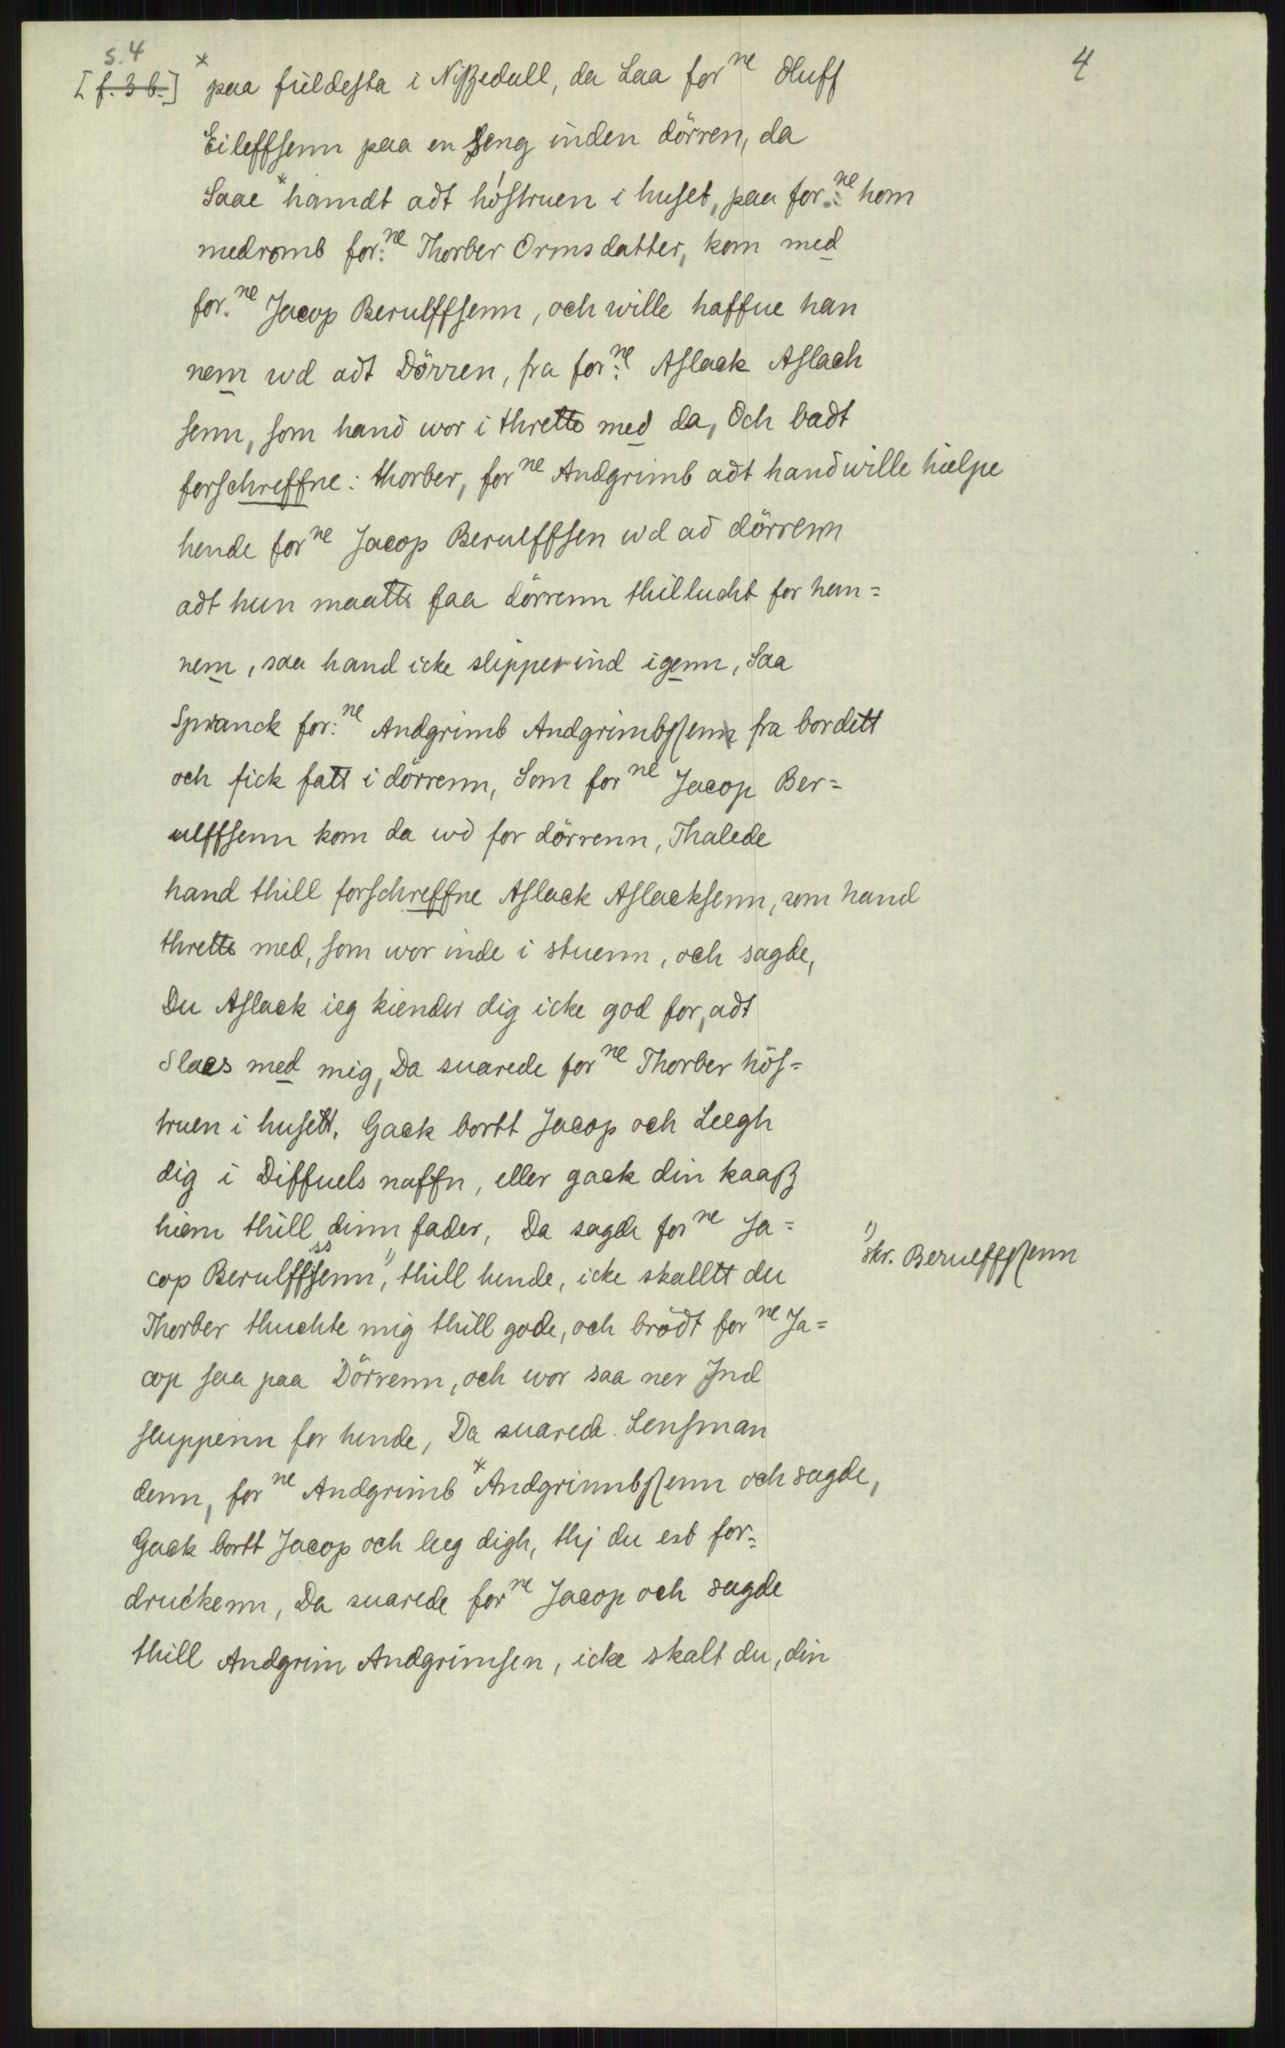 s. 4
4
[f. 3 b.] * paa fuldesta i Nißedall, da Laa for ne Oluff
Eileffsenn paa en seng inden dörren, da
Saae * handt adt hóstruen i huset, paa for: ne hom
medromb for: ne Thorber Ormsdatter, kom med
for. ne Jacop Berulffsenn, och wille haffue han
nem wd adt Dörren, fra for: ne Aslack Aslach
senn, som hand wor i thrette med da, Och badt
forschreffne: thorber, for ne Andgrimb adt hand wille hielpe
hende for ne Jacop Berulffsen wd ad dörrenn
adt hun maatte faa dörrenn thillucht for han=
nem, saa hand icke slipper ind igenn, Saa
Spranck for: ne Andgrimb Andgrimbssenn fra bordett
och fick fatt i dörrenn, Som for ne Jacop Ber=
ulffsenn kom da wd for dörrenn, Thalede
hand thill forschreffne Aslack Aslacksenn, som hand
thrette med, som wor inde i stuenn, och sagde,
Du Aslack ieg kiender dig icke god for, adt
Slaes med mig, Da suarede for ne Thorber hös=
truen i husett, Gack bortt Jacop och Leegh
dig i Diffuels naffn, eller gack din kaaß
hiem thill dinn fader, Da sagde for ne Ja=
cop Berulffssenn, 1) thill hende, icke skalltt du
Thorber thuchte mig thill gode, och brödt for ne Ja=
cop saa paa Dörrenn, och wor saa ner Ind
sluppenn for hende, Da suarede Lensman
denn, for ne Andgrimb * Andgrimbssenn och sagde,
Gack bortt Jacop och leeg digh, thj du est for=
druckenn, Da suarede for ne Jacop och sagde
thill Andgrim Andgrimsen, icke skalt du, din
1) skr. Berulffssenn